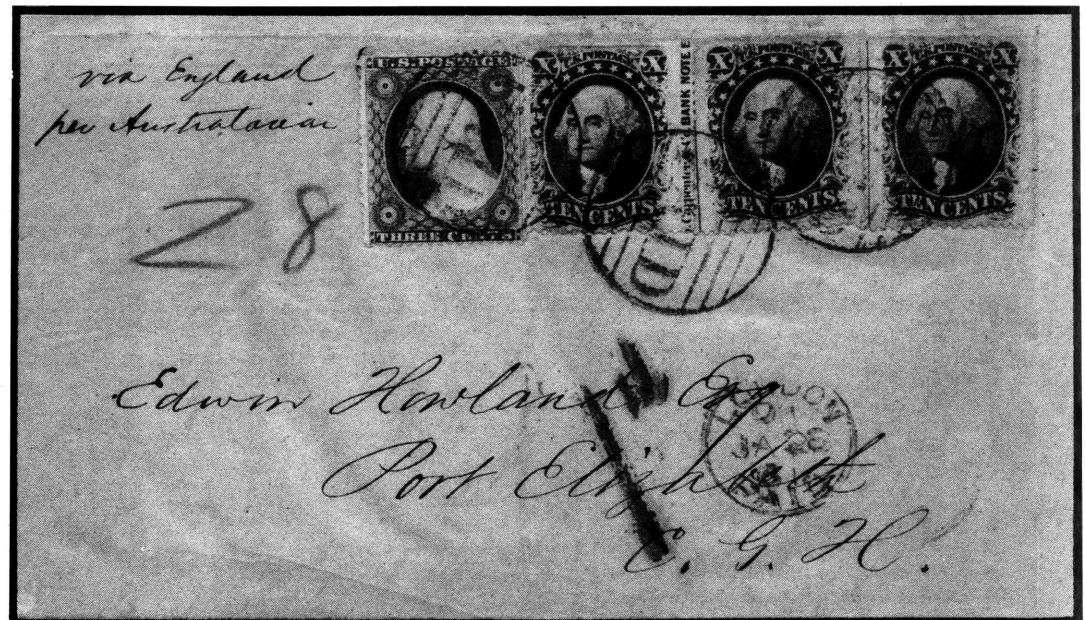 via England
per Australasian
28
U.S. POSTAGE
THREE CENTS
X U.S. POSTAGE X
TEN CENTS
Carpenter & Co BANK NOTE E
X U.S. POSTAGE X
TEN CENTS
X U.S. POSTAGE X
TEN CENTS
PAID
Edwin Howland Esq
Port Elizabeth
C. G. H.
LONDON
JA 28
PAID